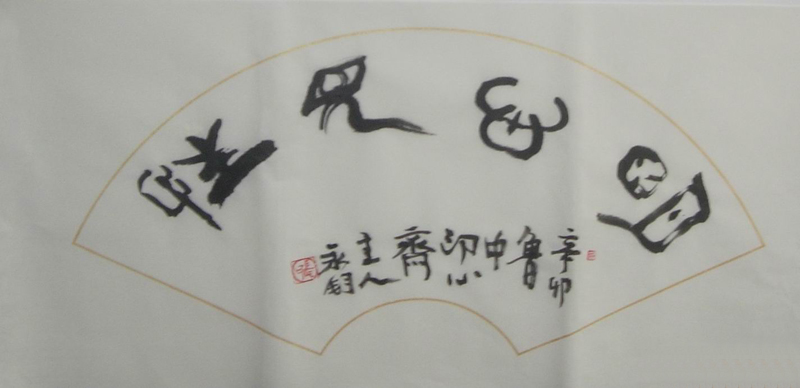 明心見性
辛卯魯中印心齊主人永